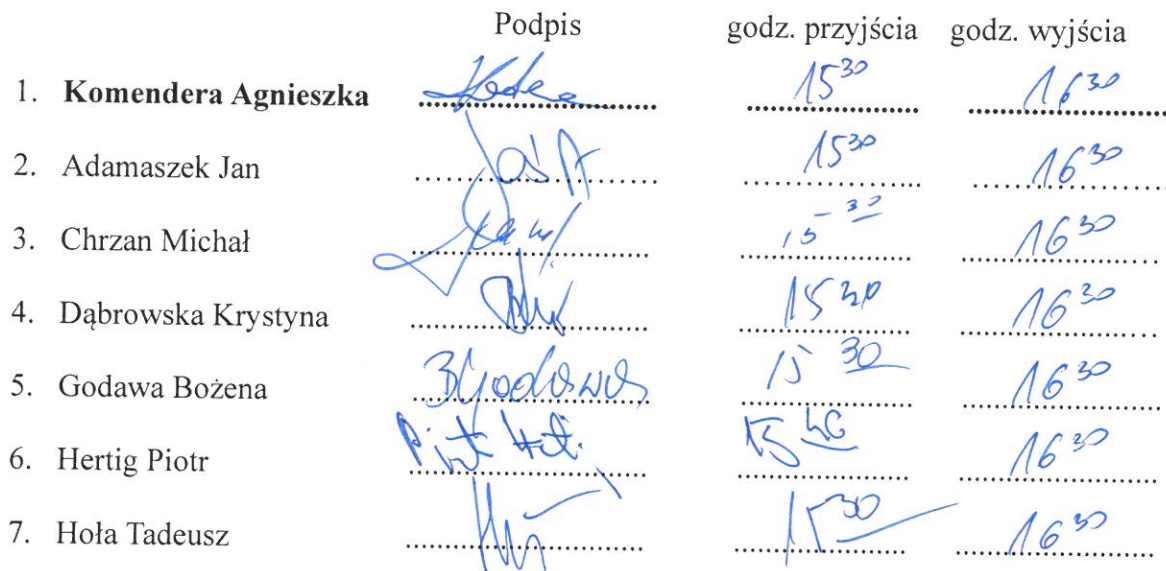 Podpis godz. przyjścia godz. wyjścia
1. Komendera Agnieszka 15³⁰ 16³⁰
2. Adamaszek Jan 15³⁰ 16³⁰
3. Chrzan Michał 15³⁰ 16³⁰
4. Dąbrowska Krystyna 16³⁰
5. Godawa Bożena BGodawa 15³⁰ 16³⁰
6. Hertig Piotr Piotr 16³⁰
7. Hoła Tadeusz 15³⁰ 16³⁰